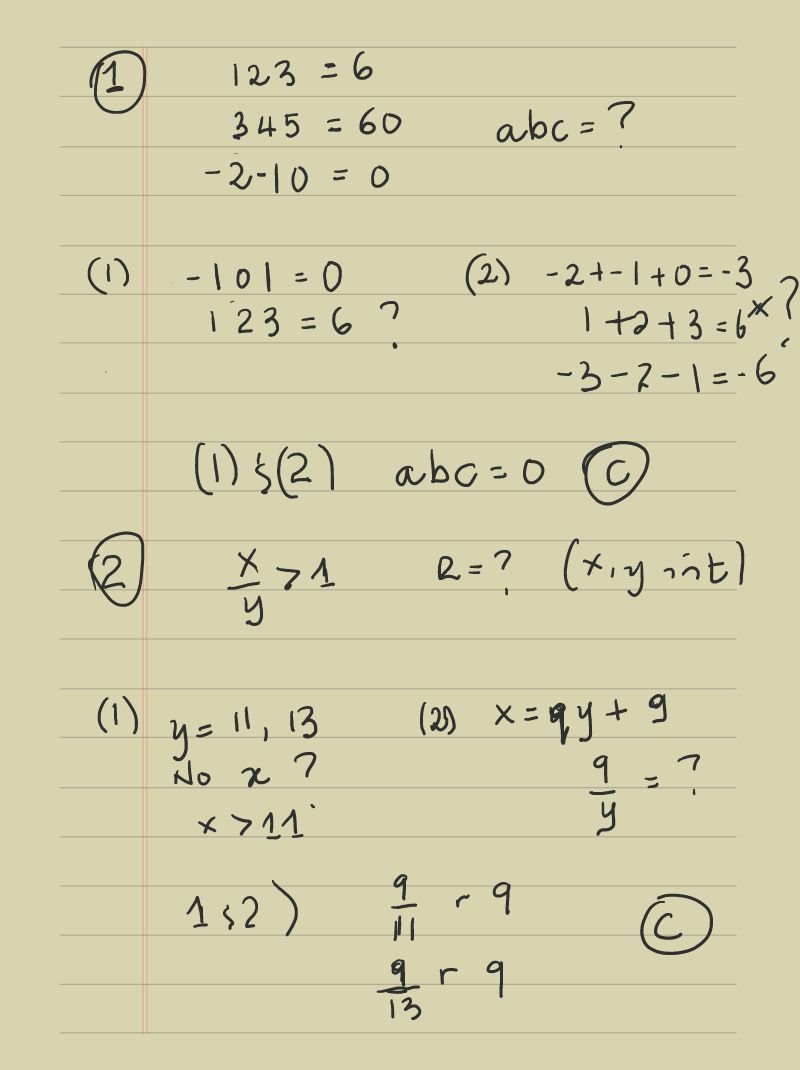 1
123 = 6
345 = 60
abc = ?
-2-10 = 0
(1) -101 = 0
123 = 6 ?
(2) -2+-1+0=-3
1+2+3=6 x ?
-3-2-1=-6
(1) & (2) abc = 0 C
2 x/y > 1 R = ? (x, y int)
(1) y = 11, 13
No x ?
x > 11
(2) x = qy + 9
9/y = ?
1 & 2) 9/11 r 9
9/13 r 9
C